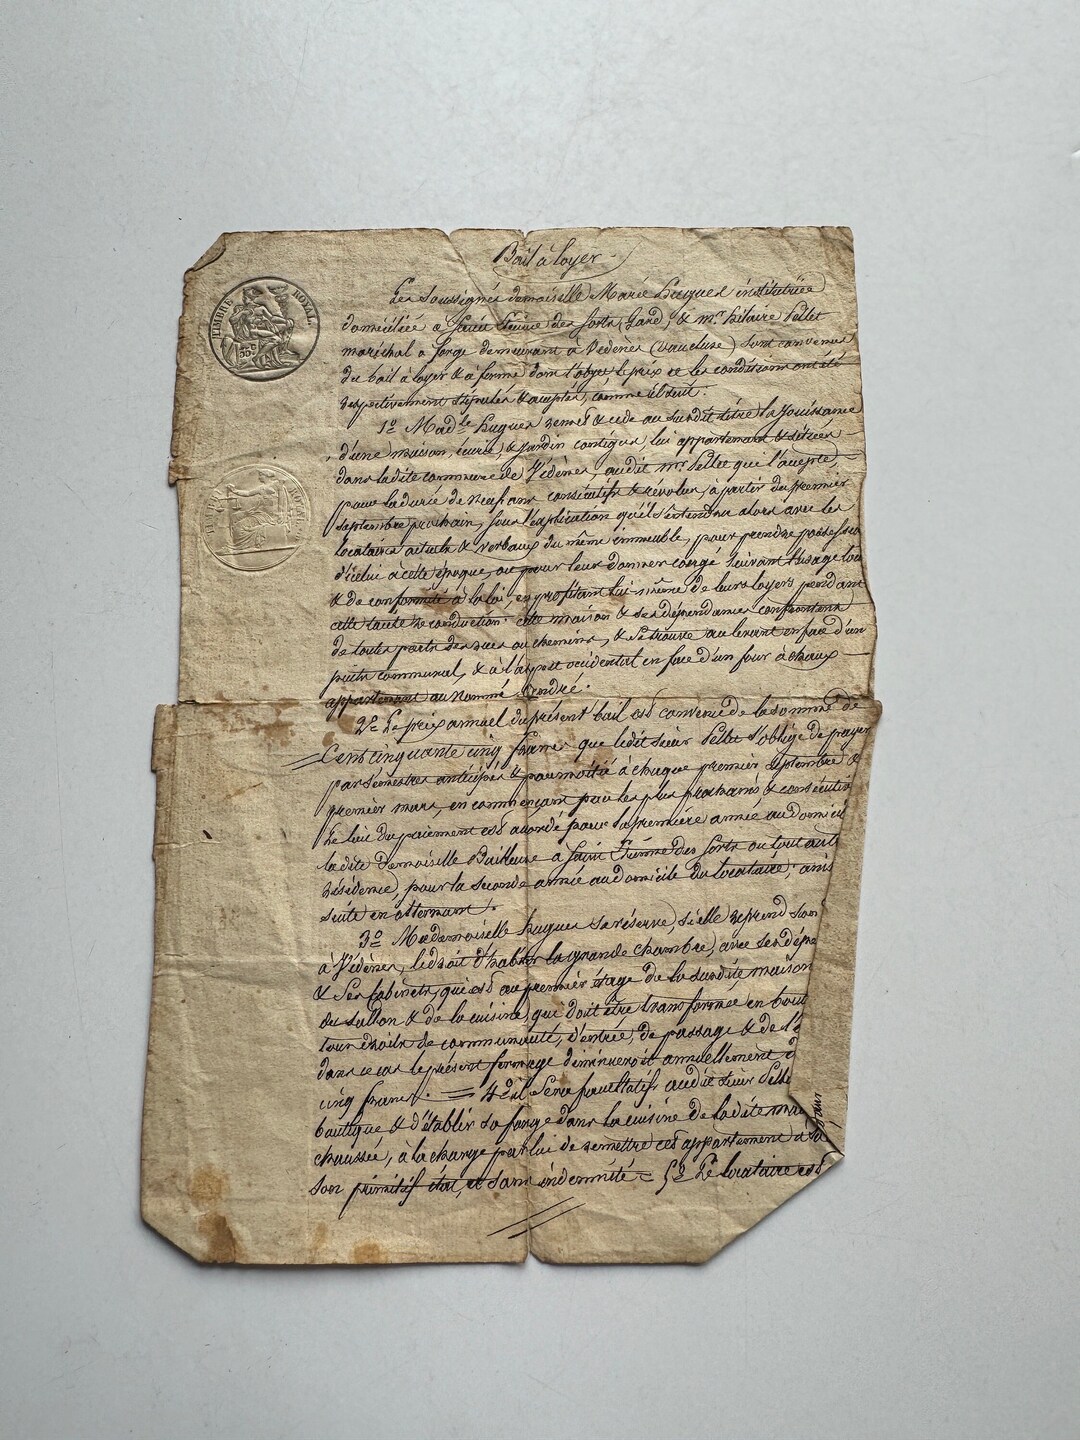 Bail à loyer
TIMBRE ROYAL
35 c
Les soussignés demoiselle Marie Hugues institutrice
domiciliée à Saint Étienne des Sorts (Gard) & mr. hilaire Pellet
maréchal à forge demeurant à Vedènes (Vaucluse) sont convenus
du bail à loyer & à ferme dont l'objet le prix et les conditions ont été
respectivement stipulés & acceptés, comme il suit.
1o. Madlle hugues remet & cède au susdit titre la jouissance
d'une maison, écurie, & jardin contigus lui appartenant & situés
dans la dite commune de Védènes, audit mr. Pellet qui l'accepte,
pour la durée de neuf ans consécutifs & révolus, à partir du premier
septembre prochain, sous l'explication qu'il s'entendra alors avec les
locataires actuels & verbaux du même immeuble, pour prendre possession
d'icelui à cette époque, ou pour leur donner congé suivant l'usage
& de conformité à la loi, en profitant lui-même de leurs loyers pendant
cette tacite reconduction. cette maison & ses dépendances confrontent
de toutes parts des rues ou chemins, & se trouve au levant en face d'un
puits communal, & à l'aspect occidental en face d'un four à chaux
appartenant au nommé
2o. Le prix annuel du présent bail est convenu de la somme de
Cent cinquante cinq francs que ledit sieur Pellet s'oblige de payer
par sémestres anticipés & par moitié à chaque premier septembre &
premier mars, en commençant par les plus prochains & consécutifs
Le lieu du paiement est accordé pour la première année au domicil
la dite demoiselle Bailleuse à Saint Étienne des Sorts ou tout aut
résidence, pour la seconde année au domicile du locataire; ains
suite en alternant.
3o. Mademoiselle hugues se réserve, si elle reprend son
à Védènes, le droit d'habiter la grande chambre, avec ses dépe
& ses cabinets, qui est au premier étage de la susdite maison
du sallon & de la cuisine, qui doit être transformée en bout
tous droits de communauté, d'entrée, de passage & de l'
dans ce cas le présent fermage diminueroit annuellement d
cinq francs. = 4o. il sera facultatif audit sieur Pelle
boutique & d'établir sa forge dans la cuisine de la dite mai
chaussée, à la charge par lui de remettre cet appartement à sa
son primitif état, et sans indemnité = 5o. Le locataire est